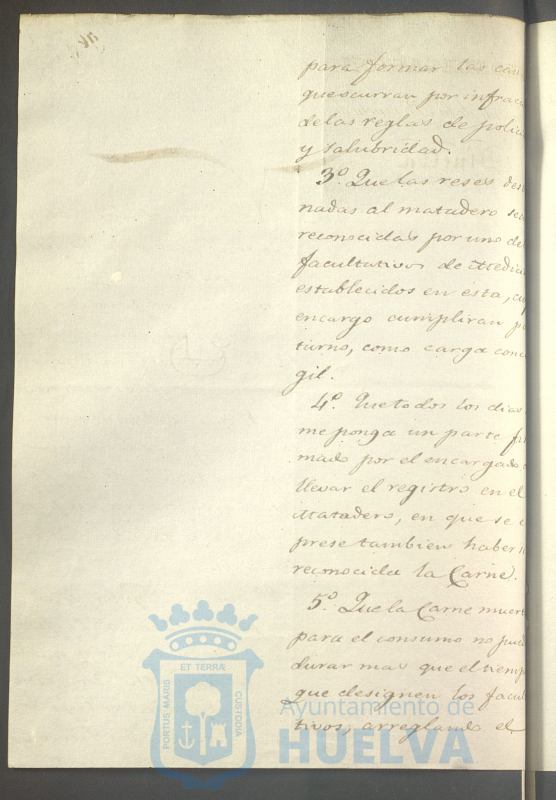 para formar las cau
que ocurran por infrac
de las reglas de polic
y salubridad.
3º. Que las reses des
nadas al matadero sea
reconocidas por uno de
facultativos de Medici
establecidos en esta, cu
encargo cumpliran p
turno, como carga conc
gil.
4º. Que todos los dias
me ponga un parte fir
mado por el encargado
llevar el registro en el
Matadero, en que se e
prese tambien habers
reconocida la Carne.
5º. Que la Carne muert
para el consumo no pued
durar mas que el tiemp
que designen los facul
tivos, arreglando el
PORTUS MARIS
ET TERRÆ
CUSTODIA
Ayuntamiento de
HUELVA